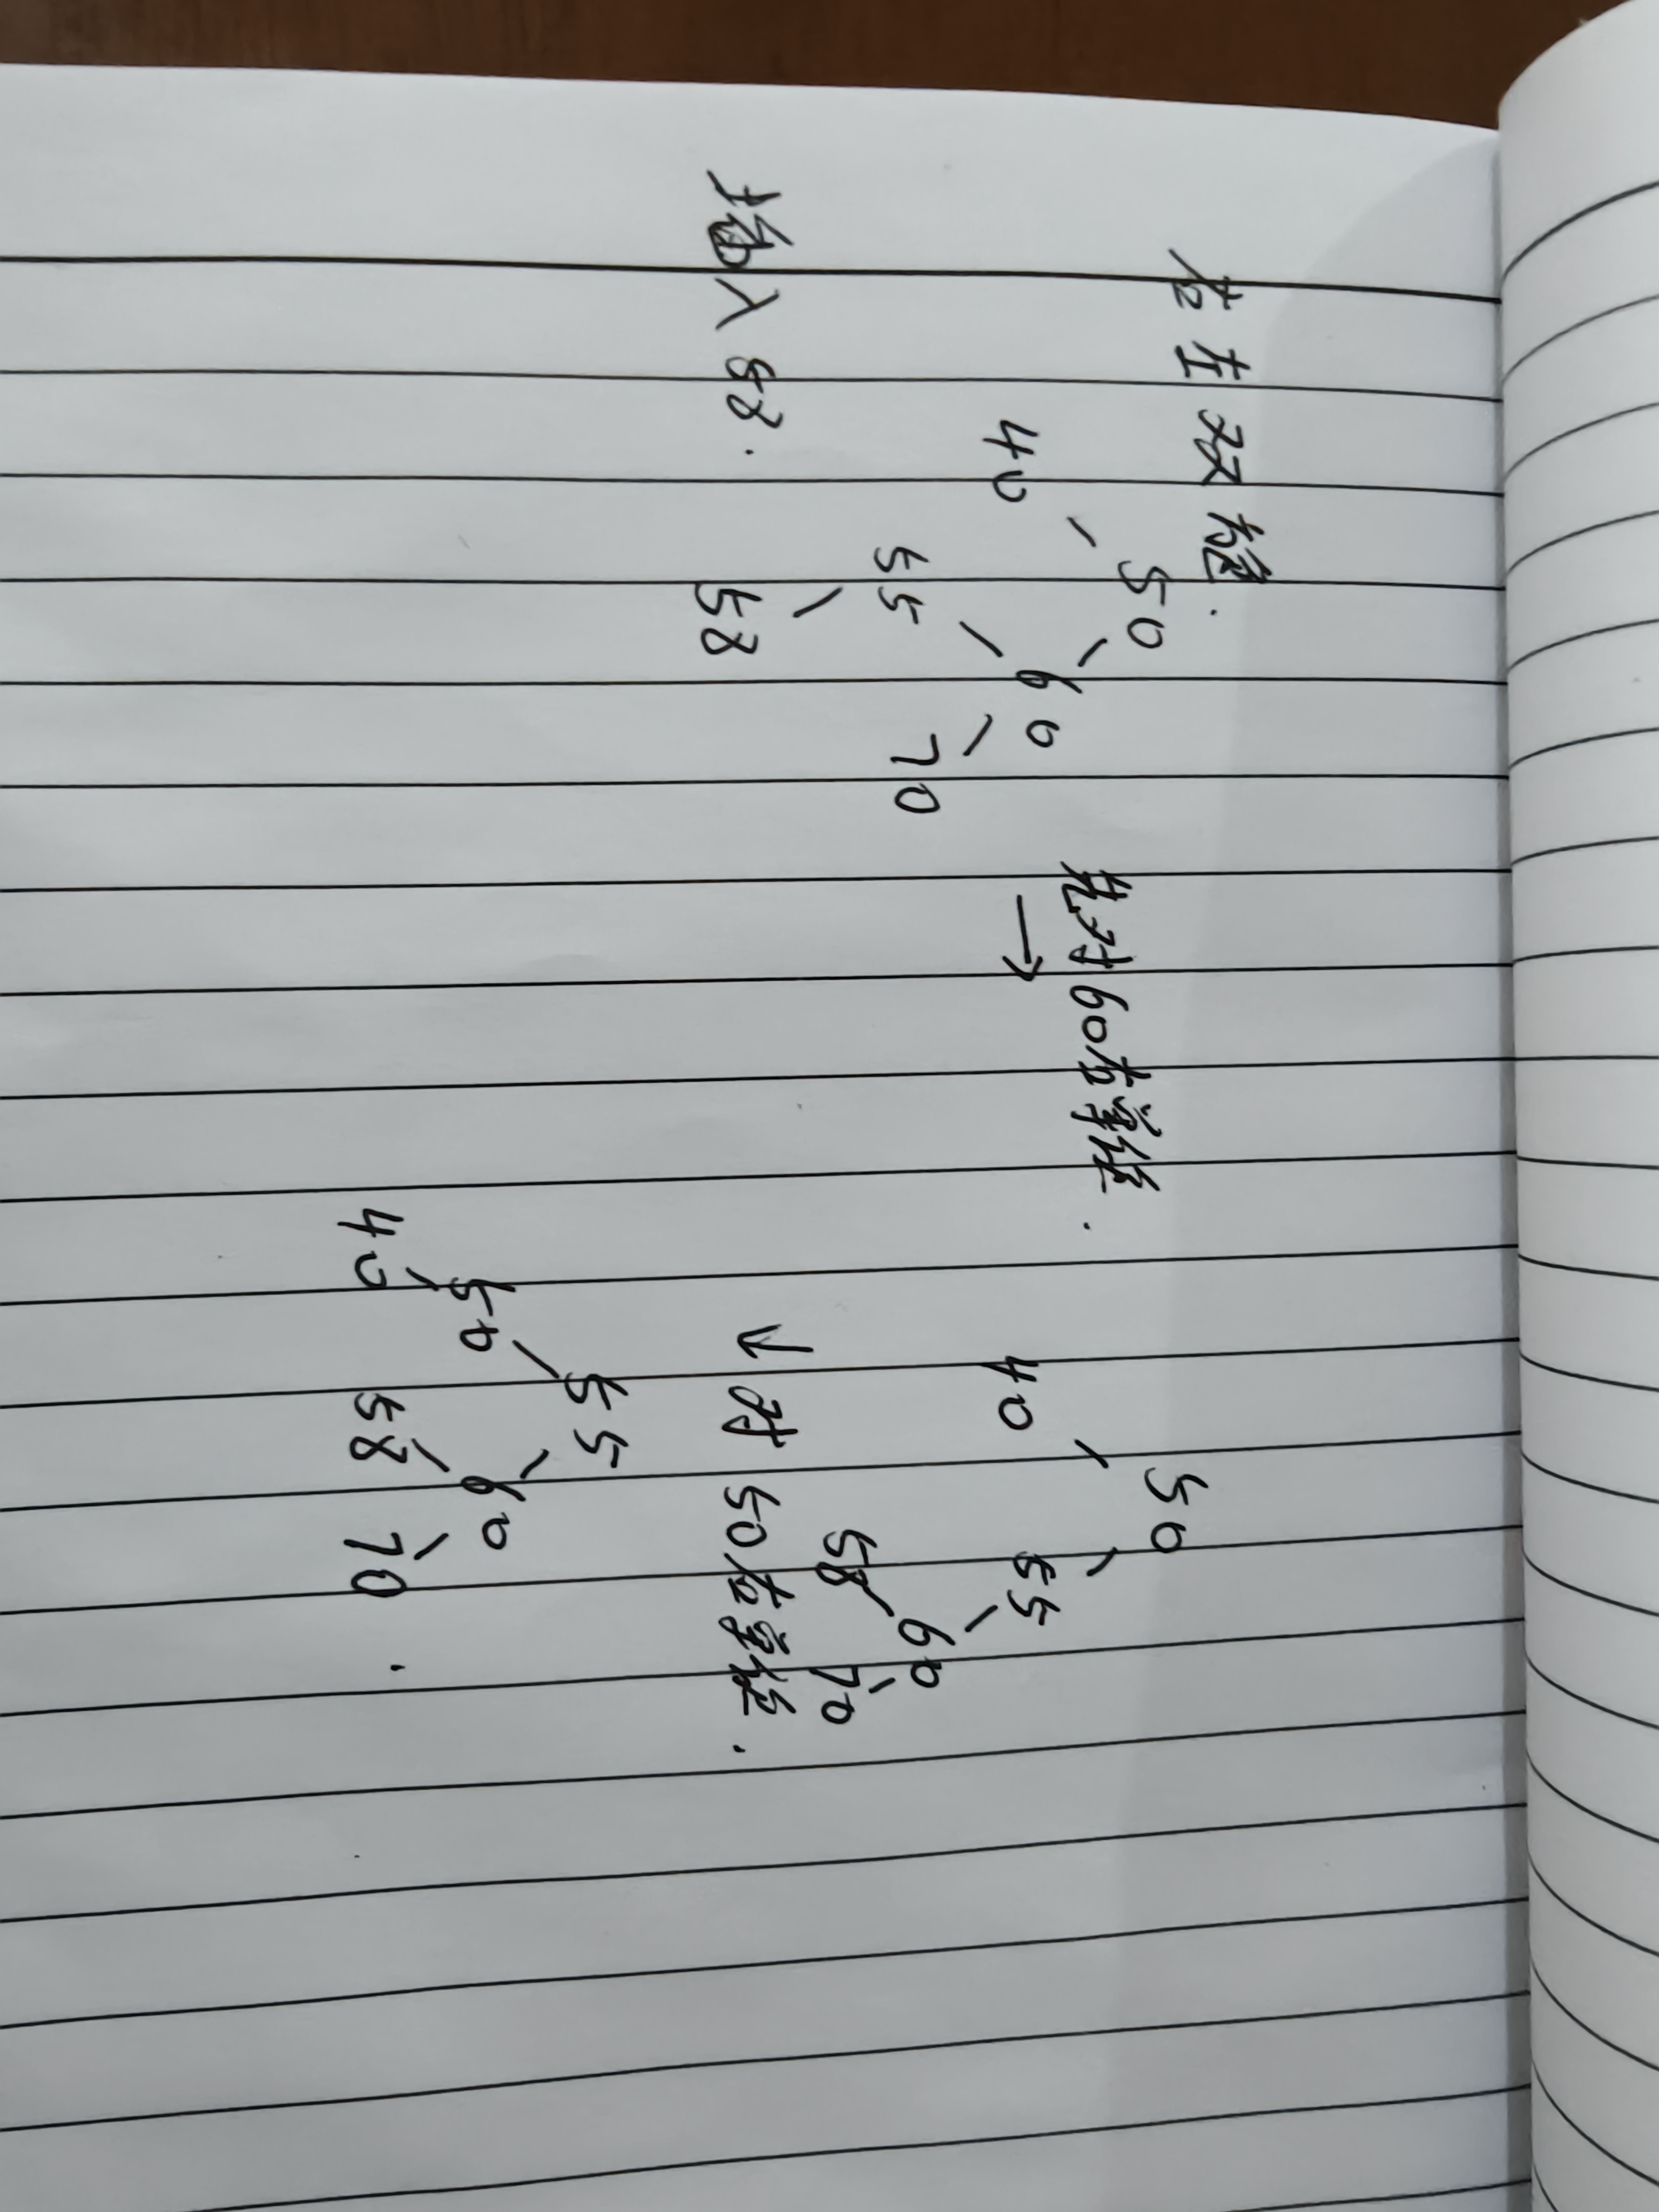 右左双旋.
50 先对60右单旋. 50
40 60 → 40 55
55 70 60
58 58 70
插入58. ↓ 对50右单旋.
55
50 60
40 58 70.